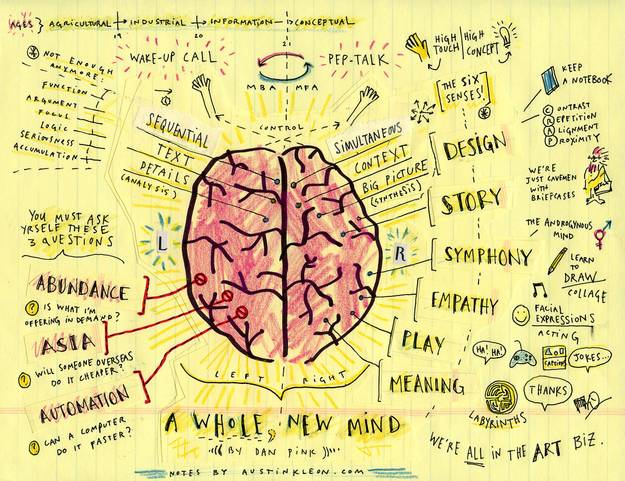 AGES } AGRICULTURAL → INDUSTRIAL → INFORMATION → CONCEPTUAL
19 20 21
* NOT ENOUGH
ANYMORE:
FUNCTION
ARGUMENT
FOCUS
LOGIC
SERIOUSNESS
ACCUMULATION
WAKE-UP CALL
MBA MFA
PEP-TALK
HIGH TOUCH | HIGH CONCEPT
CONTROL
SEQUENTIAL
TEXT
DETAILS
(ANALYSIS)
SIMULTANEOUS
CONTEXT
BIG PICTURE
(SYNTHESIS)
L
R
[THE SIX
SENSES!]
*
DESIGN
STORY
SYMPHONY
EMPATHY
PLAY
MEANING
KEEP
A NOTEBOOK
CONTRAST
REPETITION
ALIGNMENT
PROXIMITY
WE'RE
JUST CAVEMEN
WITH
BRIEFCASES
THE ANDROGYNOUS
MIND
LEARN
TO
DRAW
COLLAGE
FACIAL
EXPRESSIONS
ACTING
HA! HA!
CAPTION
JOKES...
THANKS
LABYRINTHS
WE'RE ALL IN THE ART BIZ.
YOU MUST ASK
YRSELF THESE
3 QUESTIONS
ABUNDANCE
? IS WHAT I'M
OFFERING IN DEMAND?
ASIA
? WILL SOMEONE OVERSEAS
DO IT CHEAPER?
AUTOMATION
? CAN A COMPUTER
DO IT FASTER?
LEFT RIGHT
A WHOLE, NEW MIND
BY DAN PINK
NOTES BY AUSTINKLEON.COM